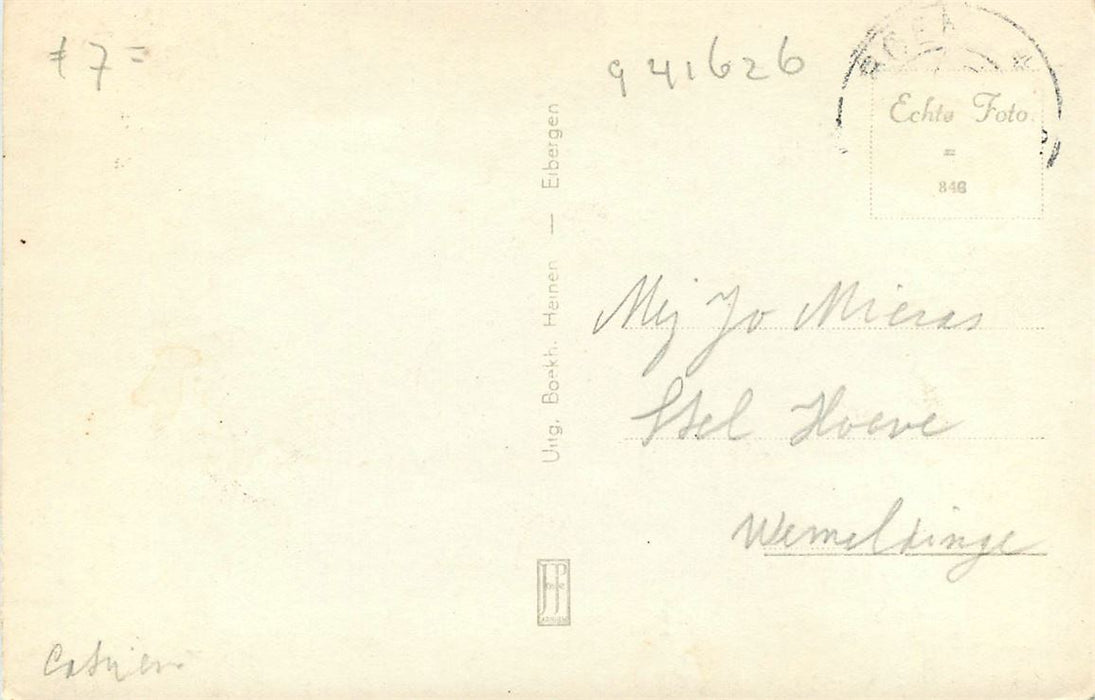 7=
941626
Echte Foto
=
846
Uitg. Boekh. Heinen — Eibergen
Mej Jo Mieras
Stel Hoeve
Wemeldinge
JP
Catrien